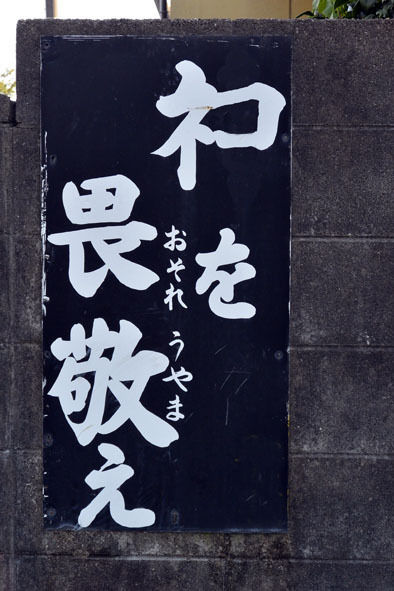 ネコを
おそれ うやま
畏敬え